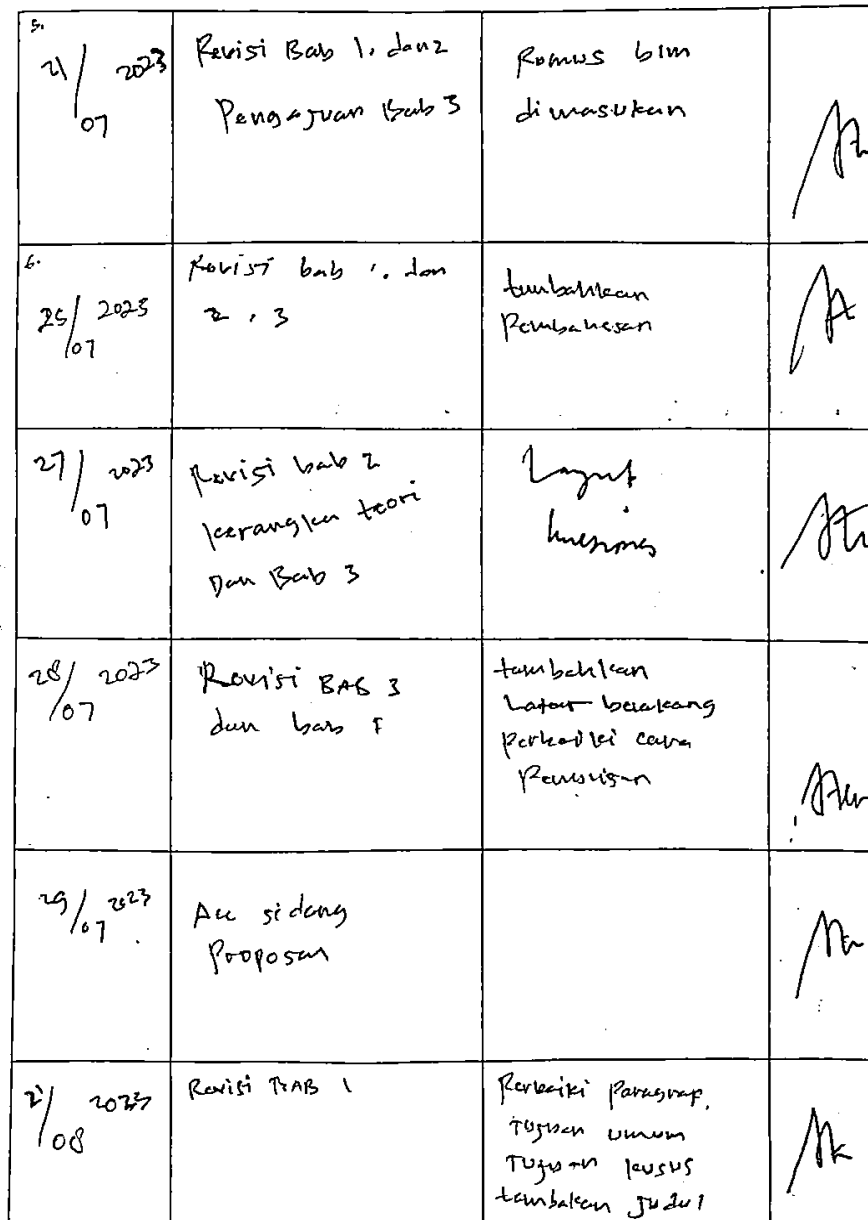 5.
21/07 2023
Revisi Bab 1. dan 2
Pengajuan Bab 3
Romus blm
dimasukan
6.
25/07 2023
Revisi bab 1. dan
2 . 3
tambahkan
Pembahasan
27/07 2023
Revisi bab 2
kerangka teori
Dan Bab 3
28/07 2023
Revisi BAB 3
dan bab
tambahkan
Latar belakang
perbaiki cara
Penulisan
29/07 2023
Acc sidang
Proposal
2023
08
Revisi BAB 1
Perbaiki Paragrap.
Tujuan umum
Tujuan kusus
tambakan Judul